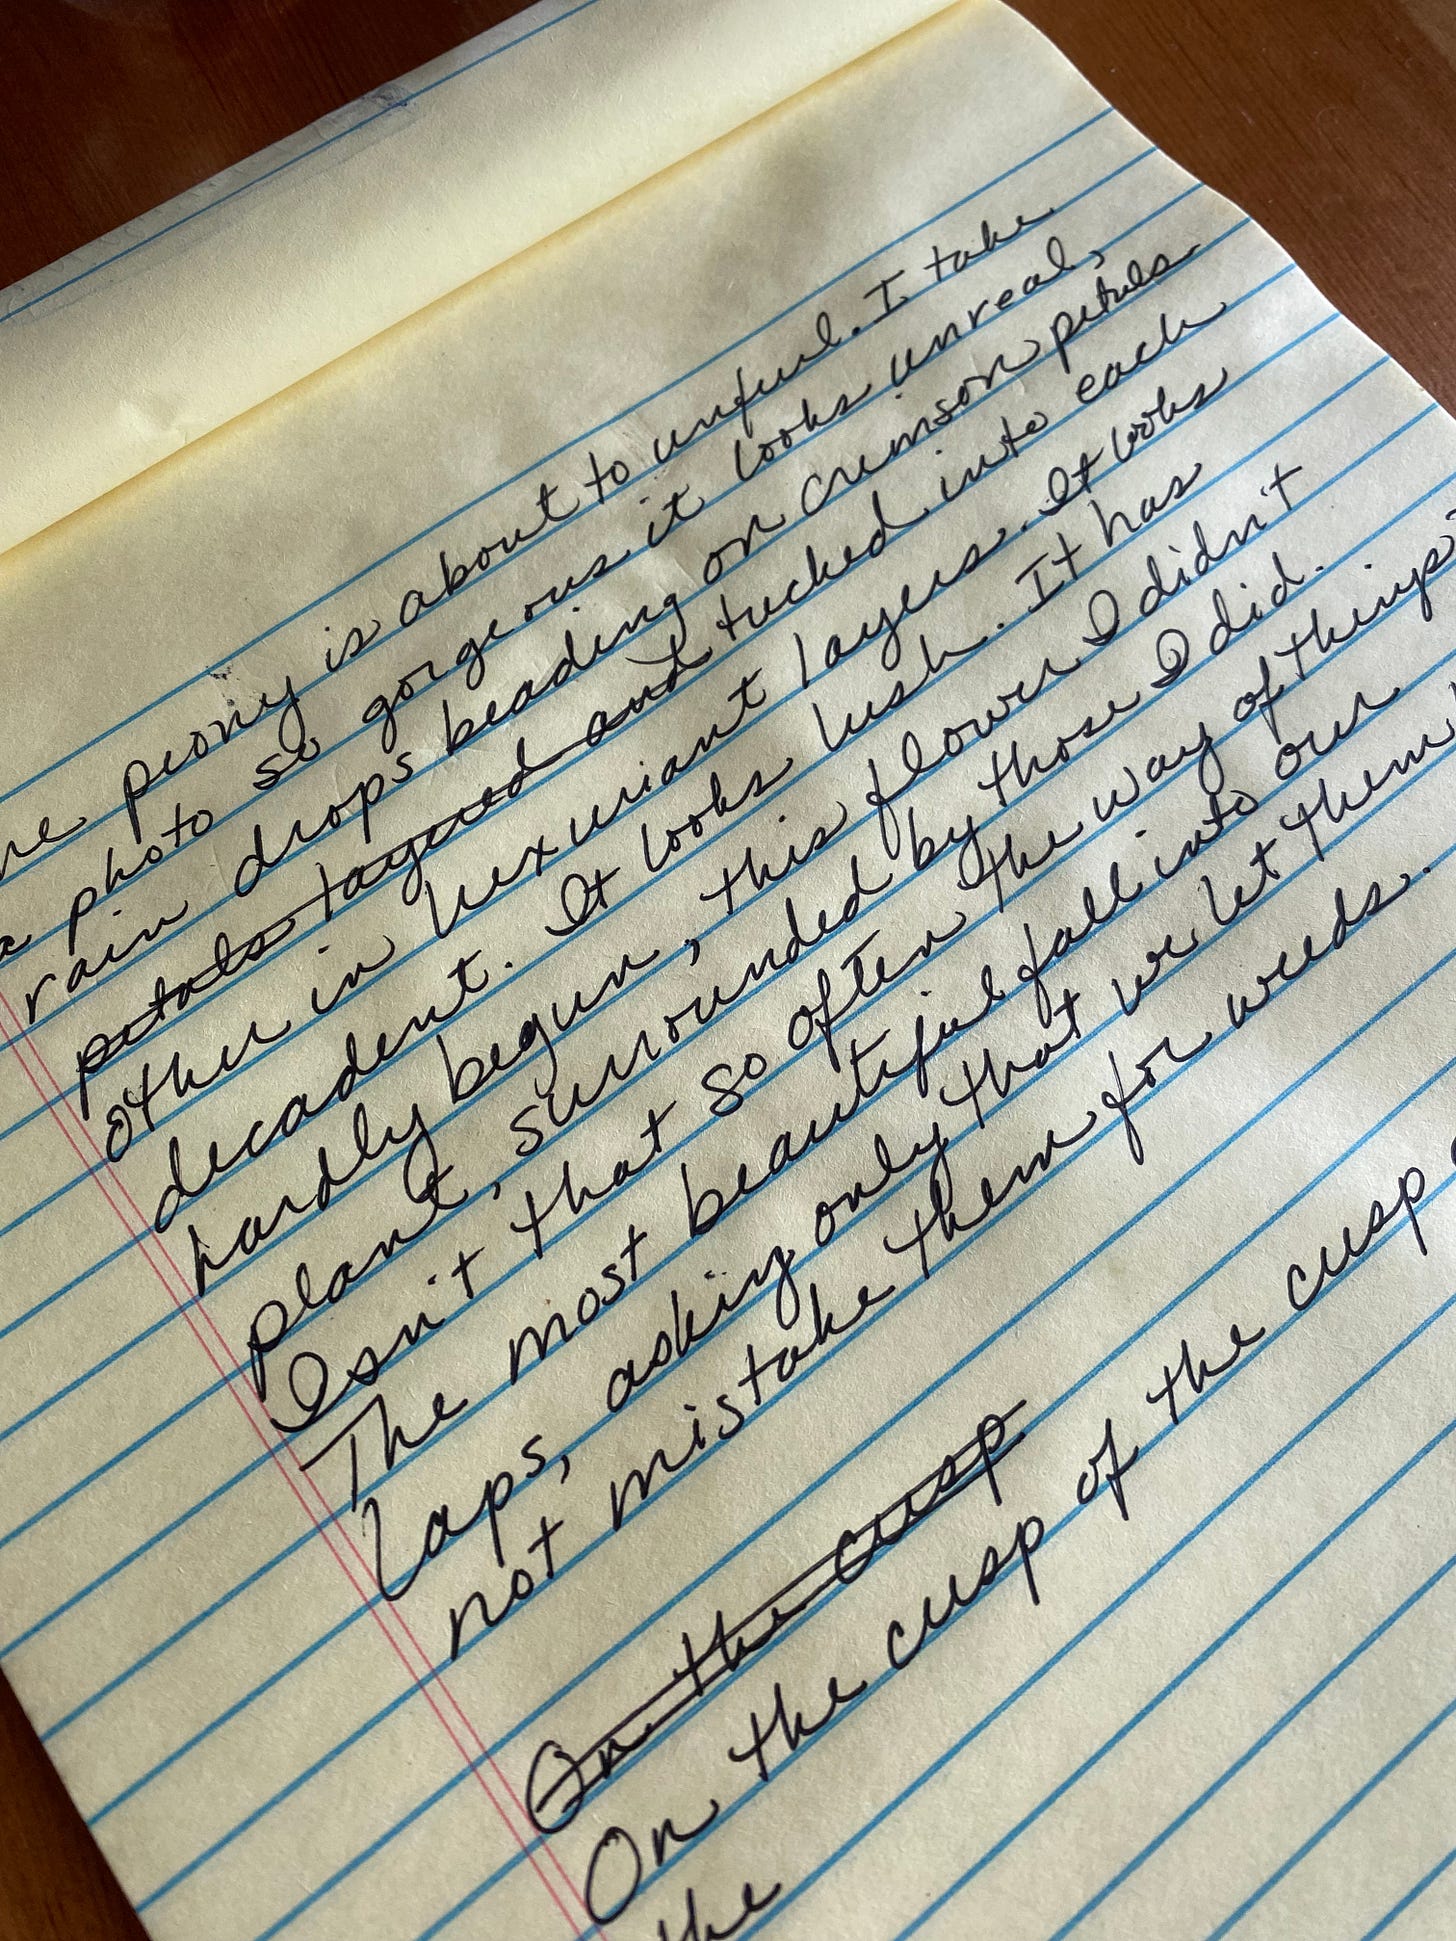 he peony is about to unfurl. I take
a photo so gorgeous it looks unreal,
rain drops beading on crimson petals
petals layered and tucked into each
other in luxuriant layers. It looks
decadent. It looks lush. It has
hardly begun, this flower I didn't
plant, surrounded by those I did.
Isn't that so often the way of things?
The most beautiful fall into our
laps, asking only that we let them,
not mistake them for weeds.
On the cusp
On the cusp of the cusp
the